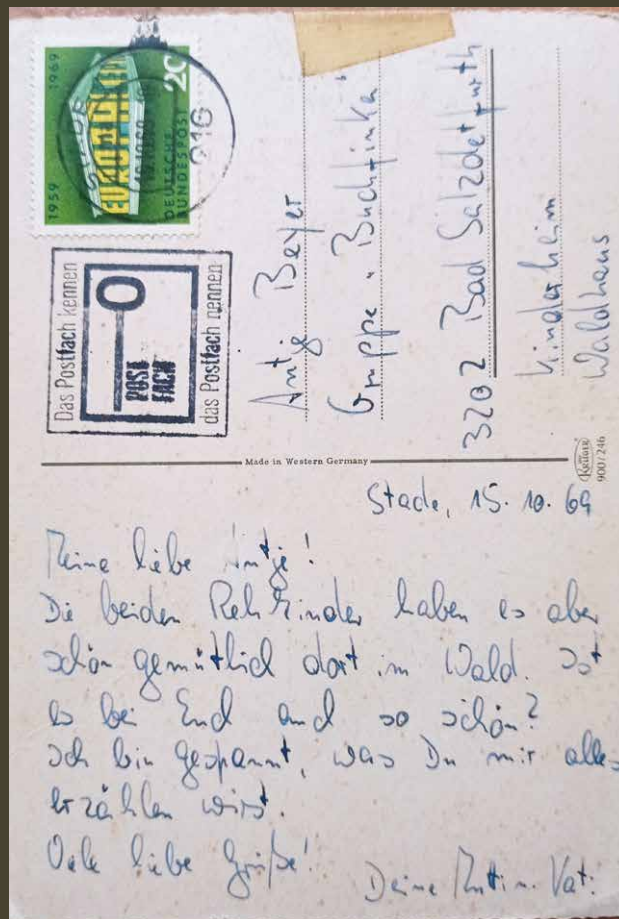 1959 1969
EUROPA CEPT
20
DEUTSCHE
BUNDESPOST
STADE
216
Das Postfach kennen
POST
FACH
das Postfach nennen
Antje Beyer
Gruppe „Buchfinken"
3202 Bad Salzdetfurth
Kinderheim
Waldhaus
Made in Western Germany
KRÜGER
900/246
Stade, 15. 10. 69
Meine liebe Antje!
Die beiden Rehkinder haben es aber
schön gemütlich dort im Wald. Ist
es bei Euch auch so schön?
Ich bin gespannt, was Du mir alles
erzählen wirst.
Viele liebe Grüße!
Deine Mutti u. Vati